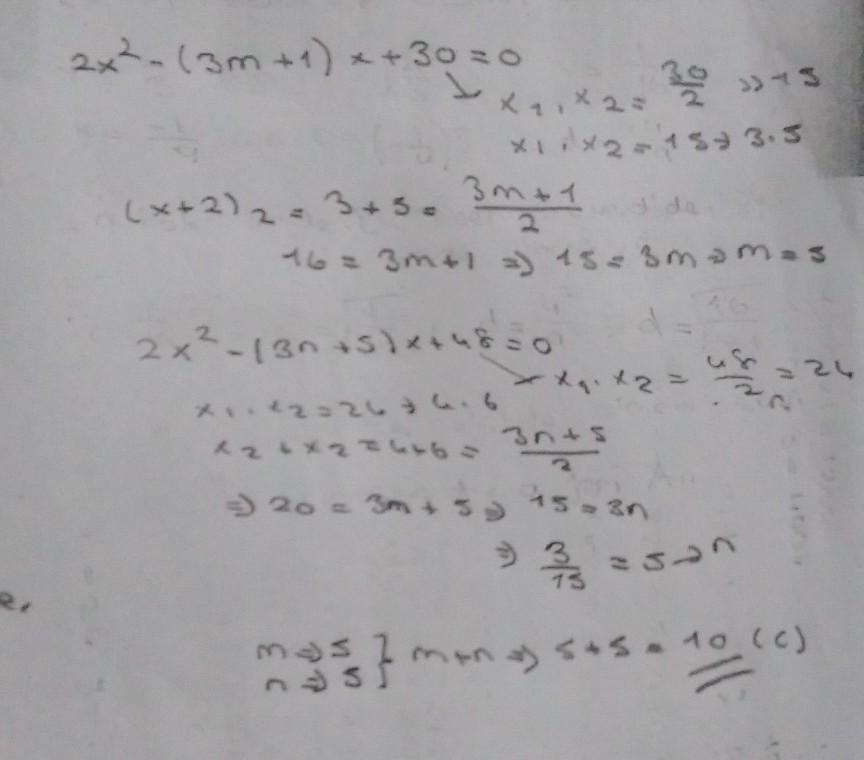 2x² - (3m + 1) x + 30 = 0
x₁ . x₂ = 30/2 => 15
x₁ . x₂ = 15 → 3.5
(x+2)₂ = 3 + 5 = (3m + 1)/2
16 = 3m+1 => 15 = 3m → m = 5
2x² - (3n + 5) x + 48 = 0
x₁ . x₂ = 48/2 = 24
x₁ . x₂ = 24 → 4.6
x₂ + x₂ = 4+6 = (3n + 5)/2
=> 20 = 3m + 5 => 15 = 3n
=> 3/15 = 5 → n
e.
m => 5 } m+n => 5+5 = 10 (C)
n => 5